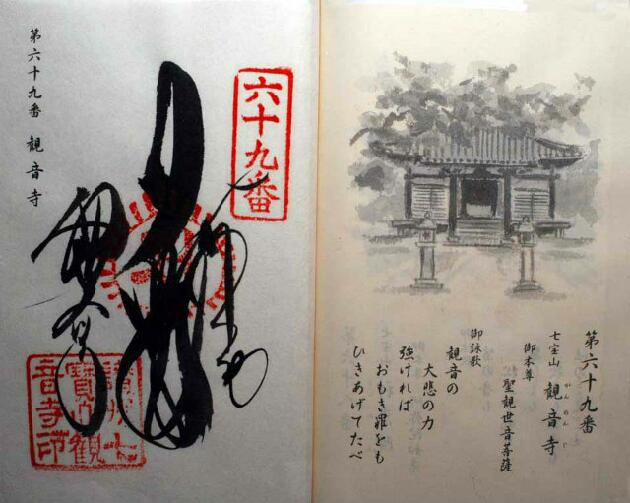 第六十九番
七宝山 観音寺
御本尊
聖観世音菩薩
御詠歌
観音の
大悲の力
強ければ
おもき罪をも
ひきあげてたべ
六十九番
第六十九番 観音寺
讃州七
寶山観
音寺印